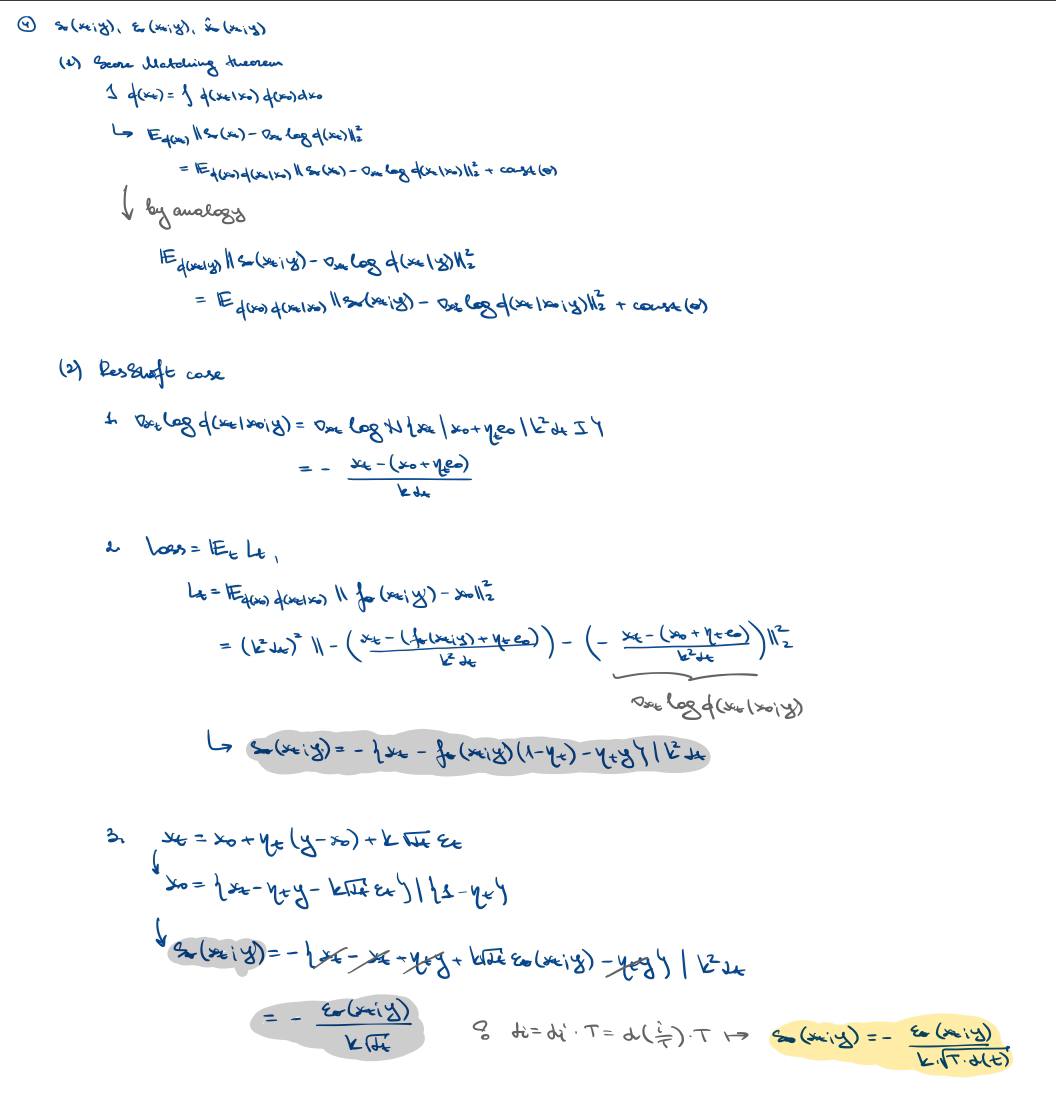 ④ s_θ(x_t;y), ε_θ(x_t;y), x̂_θ(x_t;y)
(1) Score Matching theorem
∃ q(x_t) = ∫ q(x_t|x_0) q(x_0) dx_0
↳ 𝔼_{q(x_t)} ||s_θ(x_t) - ∇_{x_t} log q(x_t)||₂²
= 𝔼_{q(x_0) q(x_t|x_0)} ||s_θ(x_t) - ∇_{x_t} log q(x_t|x_0)||₂² + const(θ)
↓ by analogy
𝔼_{q(x_t|y)} ||s_θ(x_t;y) - ∇_{x_t} log q(x_t|y)||₂²
= 𝔼_{q(x_0) q(x_t|x_0)} ||s_θ(x_t;y) - ∇_{x_t} log q(x_t|x_0;y)||₂² + const(θ)
(2) ResShift case
1. ∇_{x_t} log q(x_t|x_0;y) = ∇_{x_t} log N{x_t | x_0 + η_t e_0 | k² α_t I}
= - (x_t - (x_0 + η_t e_0)) / (k α_t)
2. Loss = 𝔼_t L_t,
L_t = 𝔼_{q(x_0) q(x_t|x_0)} || f_θ(x_t;y) - x_0||₂²
= (k² α_t)² || - ((x_t - (f_θ(x_t;y) + η_t e_0)) / (k² α_t)) - (- (x_t - (x_0 + η_t e_0)) / (k² α_t)) ||₂²
∇_{x_t} log q(x_t|x_0;y)
↳ s_θ(x_t;y) = - {x_t - f_θ(x_t;y)(1-η_t) - η_t y} | k² α_t
3. x_t = x_0 + η_t (y - x_0) + k √α_t ε_t
↓ x_0 = {x_t - η_t y - k √α_t ε_t} | {1 - η_t}
↓ s_θ(x_t;y) = - {x_t - x_t + η_t y + k √α_t ε_θ(x_t;y) - η_t y} | k² α_t
= - ε_θ(x_t;y) / (k √α_t) & α_i = α_i' · T = α(i/T) · T ↦ s_θ(x_t;y) = - ε_θ(x_t;y) / (k · √(T · α(t)))